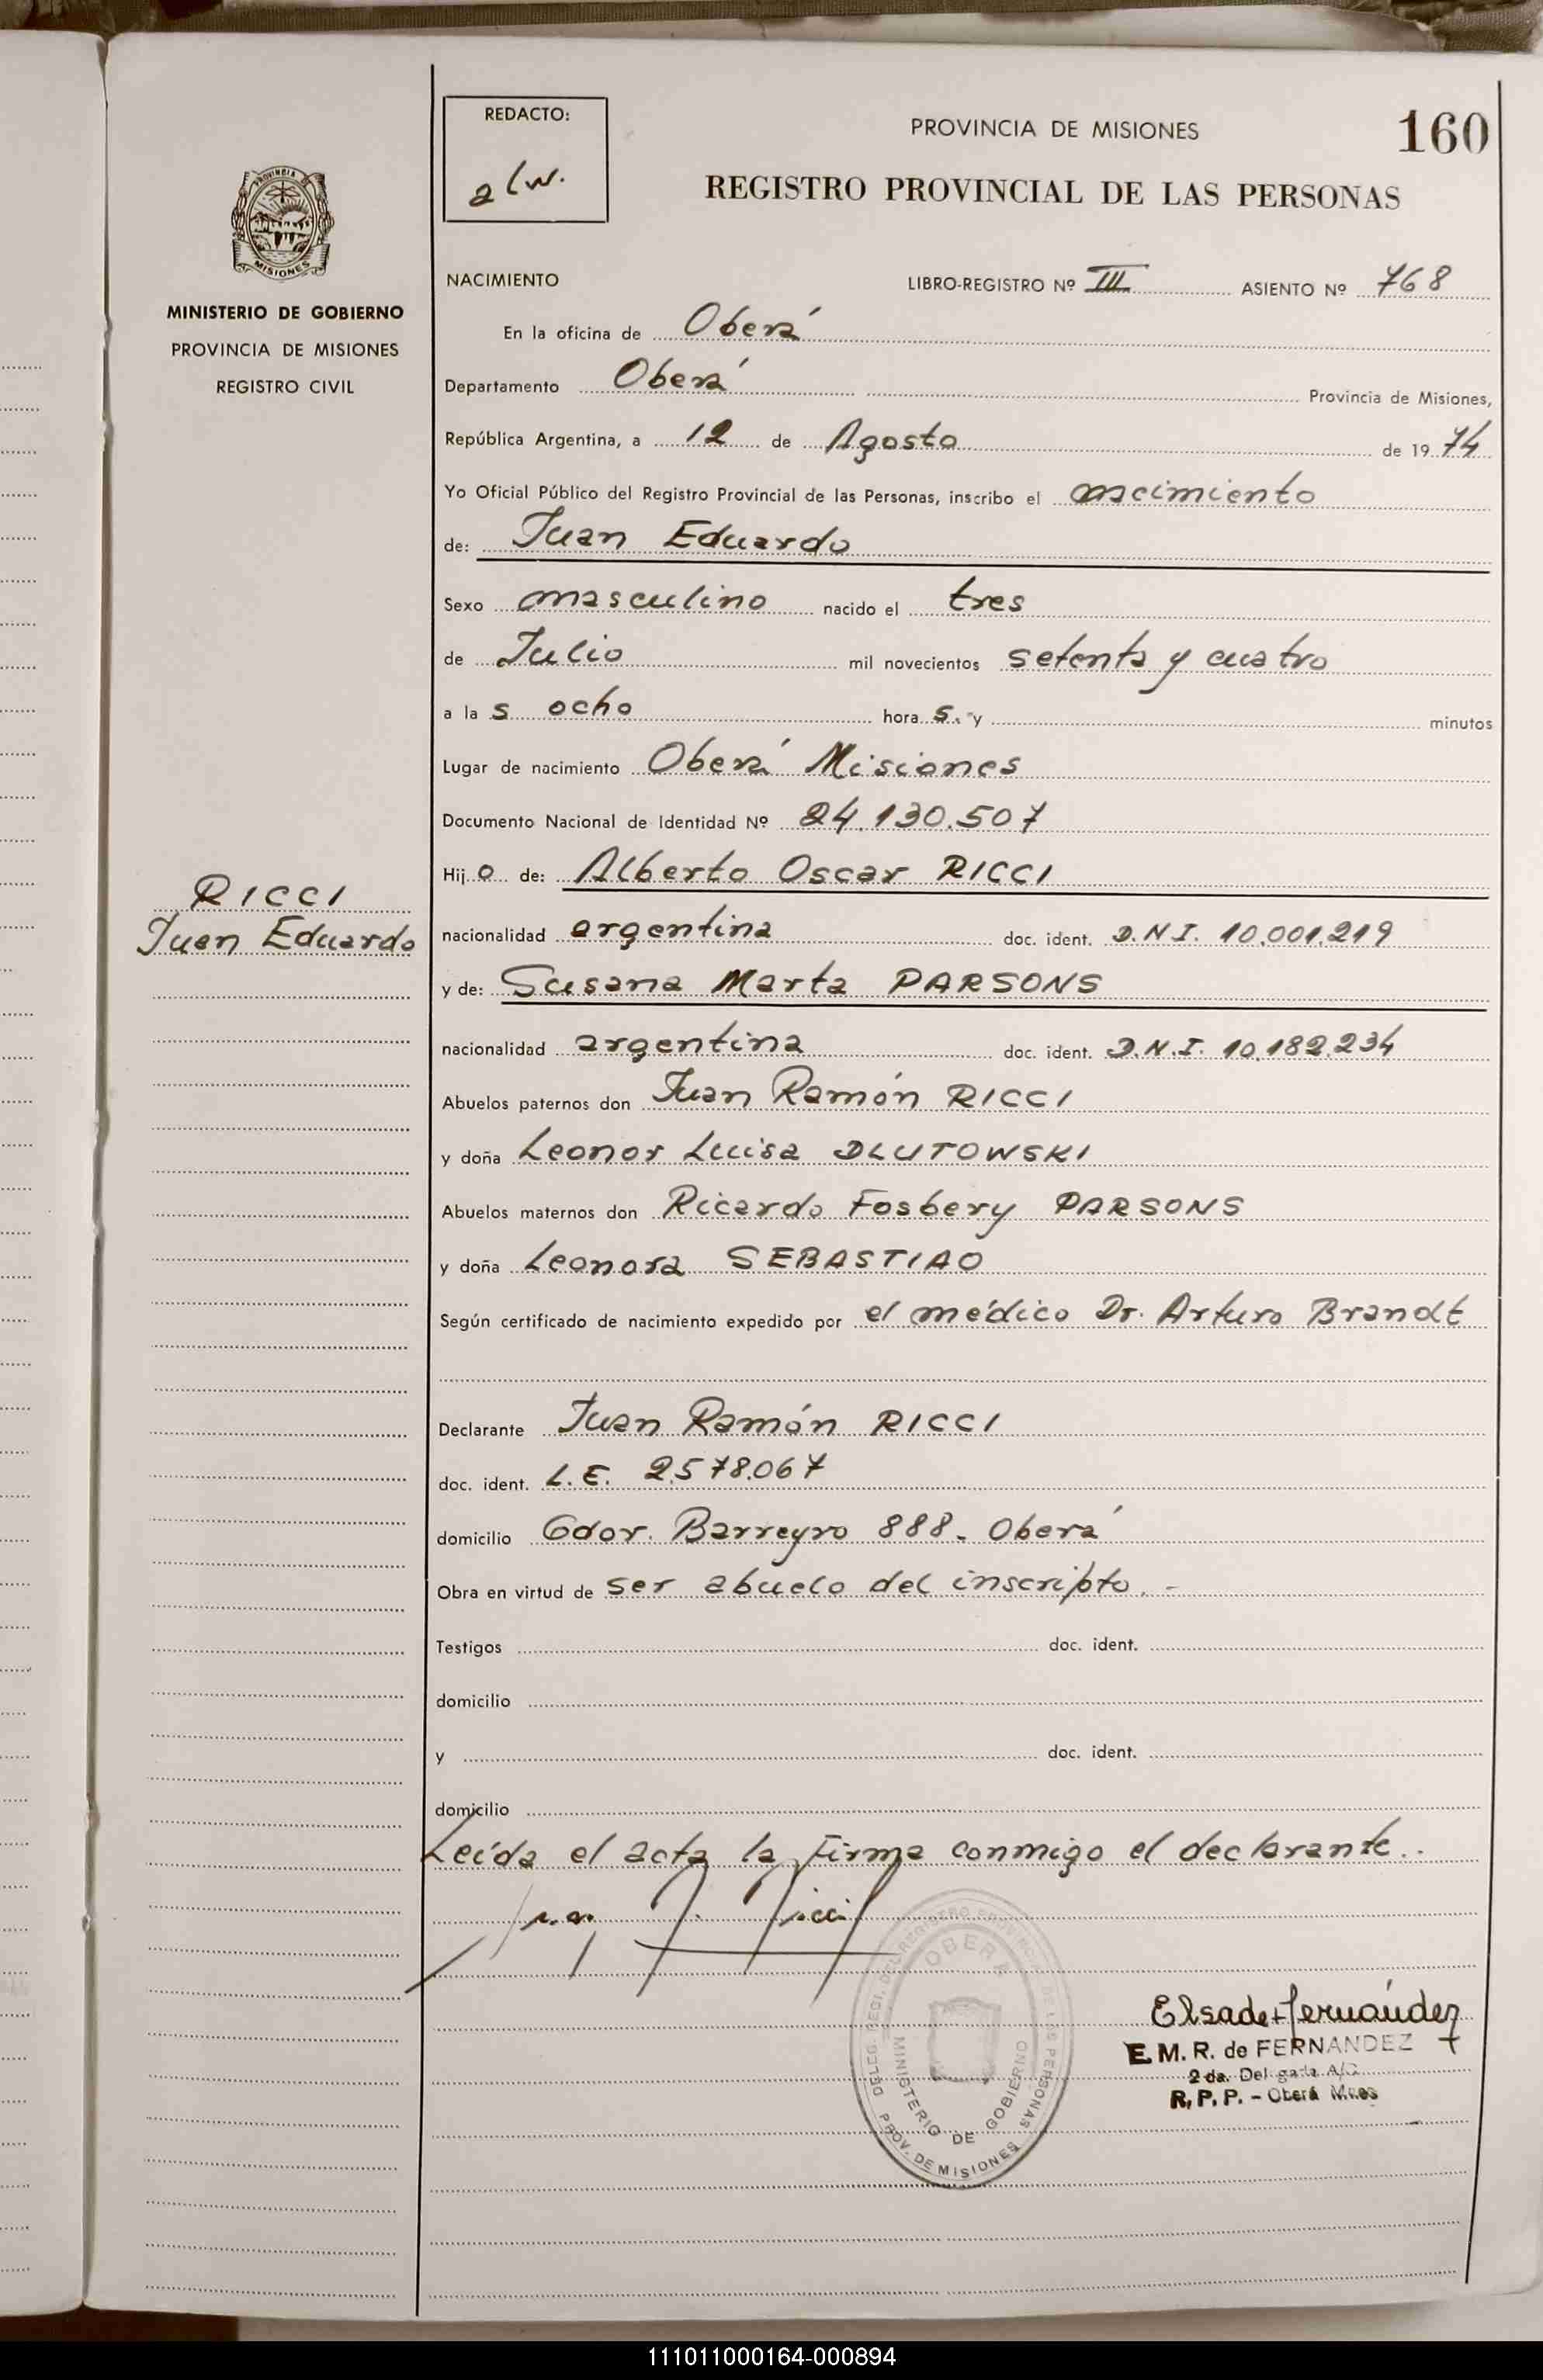 REDACTO:
alw.
PROVINCIA DE MISIONES
160
REGISTRO PROVINCIAL DE LAS PERSONAS
PROVINCIA DE
MISIONES
MINISTERIO DE GOBIERNO
PROVINCIA DE MISIONES
REGISTRO CIVIL
NACIMIENTO LIBRO-REGISTRO Nº III ASIENTO Nº 768
En la oficina de Oberá
Departamento Oberá Provincia de Misiones,
República Argentina, a 12 de Agosto de 1974
Yo Oficial Público del Registro Provincial de las Personas, inscribo el nacimiento
de: Juan Eduardo
Sexo masculino nacido el tres
de Julio mil novecientos setenta y cuatro
a la s ocho hora s. y minutos
Lugar de nacimiento Oberá Misiones
Documento Nacional de Identidad Nº 24.130.507
Hij o de: Alberto Oscar RICCI
RICCI
Juan Eduardo
nacionalidad argentina doc. ident. D.N.I. 10.001.219
y de: Susana Marta PARSONS
nacionalidad argentina doc. ident. D.N.I. 10.182.234
Abuelos paternos don Juan Ramón RICCI
y doña Leonor Luisa DLUTOWSKI
Abuelos maternos don Ricardo Fosbery PARSONS
y doña Leonora SEBASTIAO
Según certificado de nacimiento expedido por el médico Dr. Arturo Brandt
Declarante Juan Ramón RICCI
doc. ident. L.E. 2.578.067
domicilio Gdor. Barreyro 888. Oberá
Obra en virtud de ser abuelo del inscripto. -
Testigos doc. ident.
domicilio
y doc. ident.
domicilio
Leída el acta la firma conmigo el declarante..
OBERA
MINISTERIO DE GOBIERNO
PROV. DE MISIONES
Elsa de Fernández
E. M. R. de FERNANDEZ
2 da. Delegada A/C
R. P. P. - Oberá Mnes
111011000164-000894